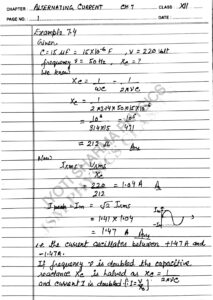 CHAPTER ALTERNATING CURRENT CH 7 CLASS XII
PAGE NO. 1 DATE
Example 7.4
Given
C = 15 μF = 15×10⁻⁶ F , V = 220 volt
frequency ν = 50 Hz , Xc = ?
We know
Xc = 1/ωC = 1/2πνC
Xc = 1/2×3.14×50×15×10⁻⁶
= 10⁶/314×15 = 10⁶/4.71
= 212 Ω Ans
Now
Irms = Vrms/Xc
= 220/212 = 1.04 A
Ipeak = Im = √2 Irms
= 1.41 × 1.04
= 1.47 A Ans
i.e. the current oscillates between +1.47 A and
-1.47 A.
If frequency ν is doubled the capacitive
reactance Xc is halved as Xc = 1/2πνC
and current I is doubled